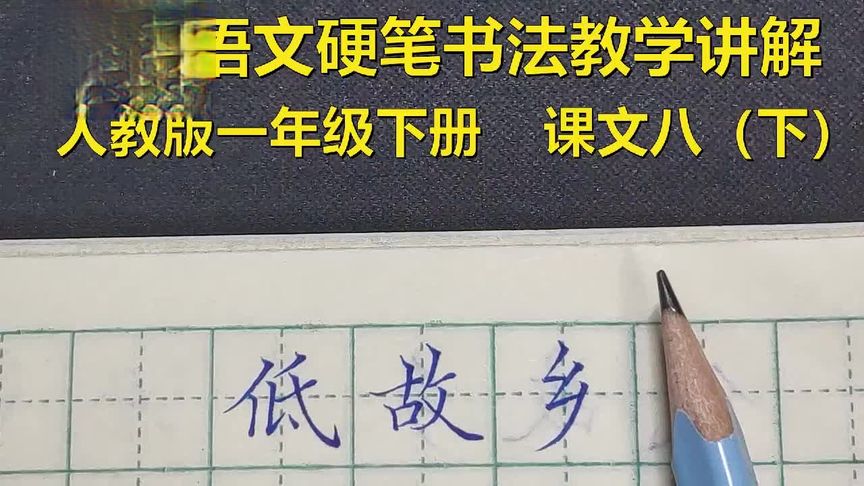 语文硬笔书法教学讲解
人教版一年级下册 课文八（下）
低故乡